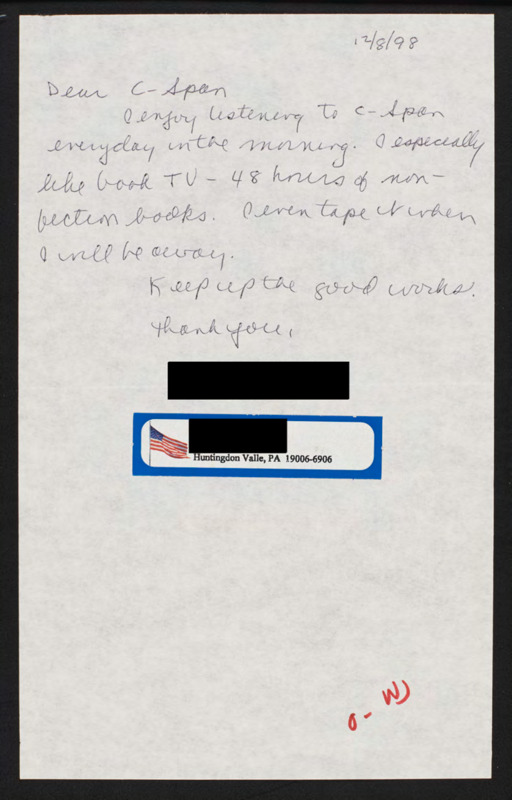 12/8/98
Dear C-Span
I enjoy listening to C-Span
everyday in the morning. I especially
like book TV - 48 hours of non-
fiction books. I even tape it when
I will be away.
Keep up the good works.
Thank you,
Huntingdon Valle, PA 19006-6906
o - W)